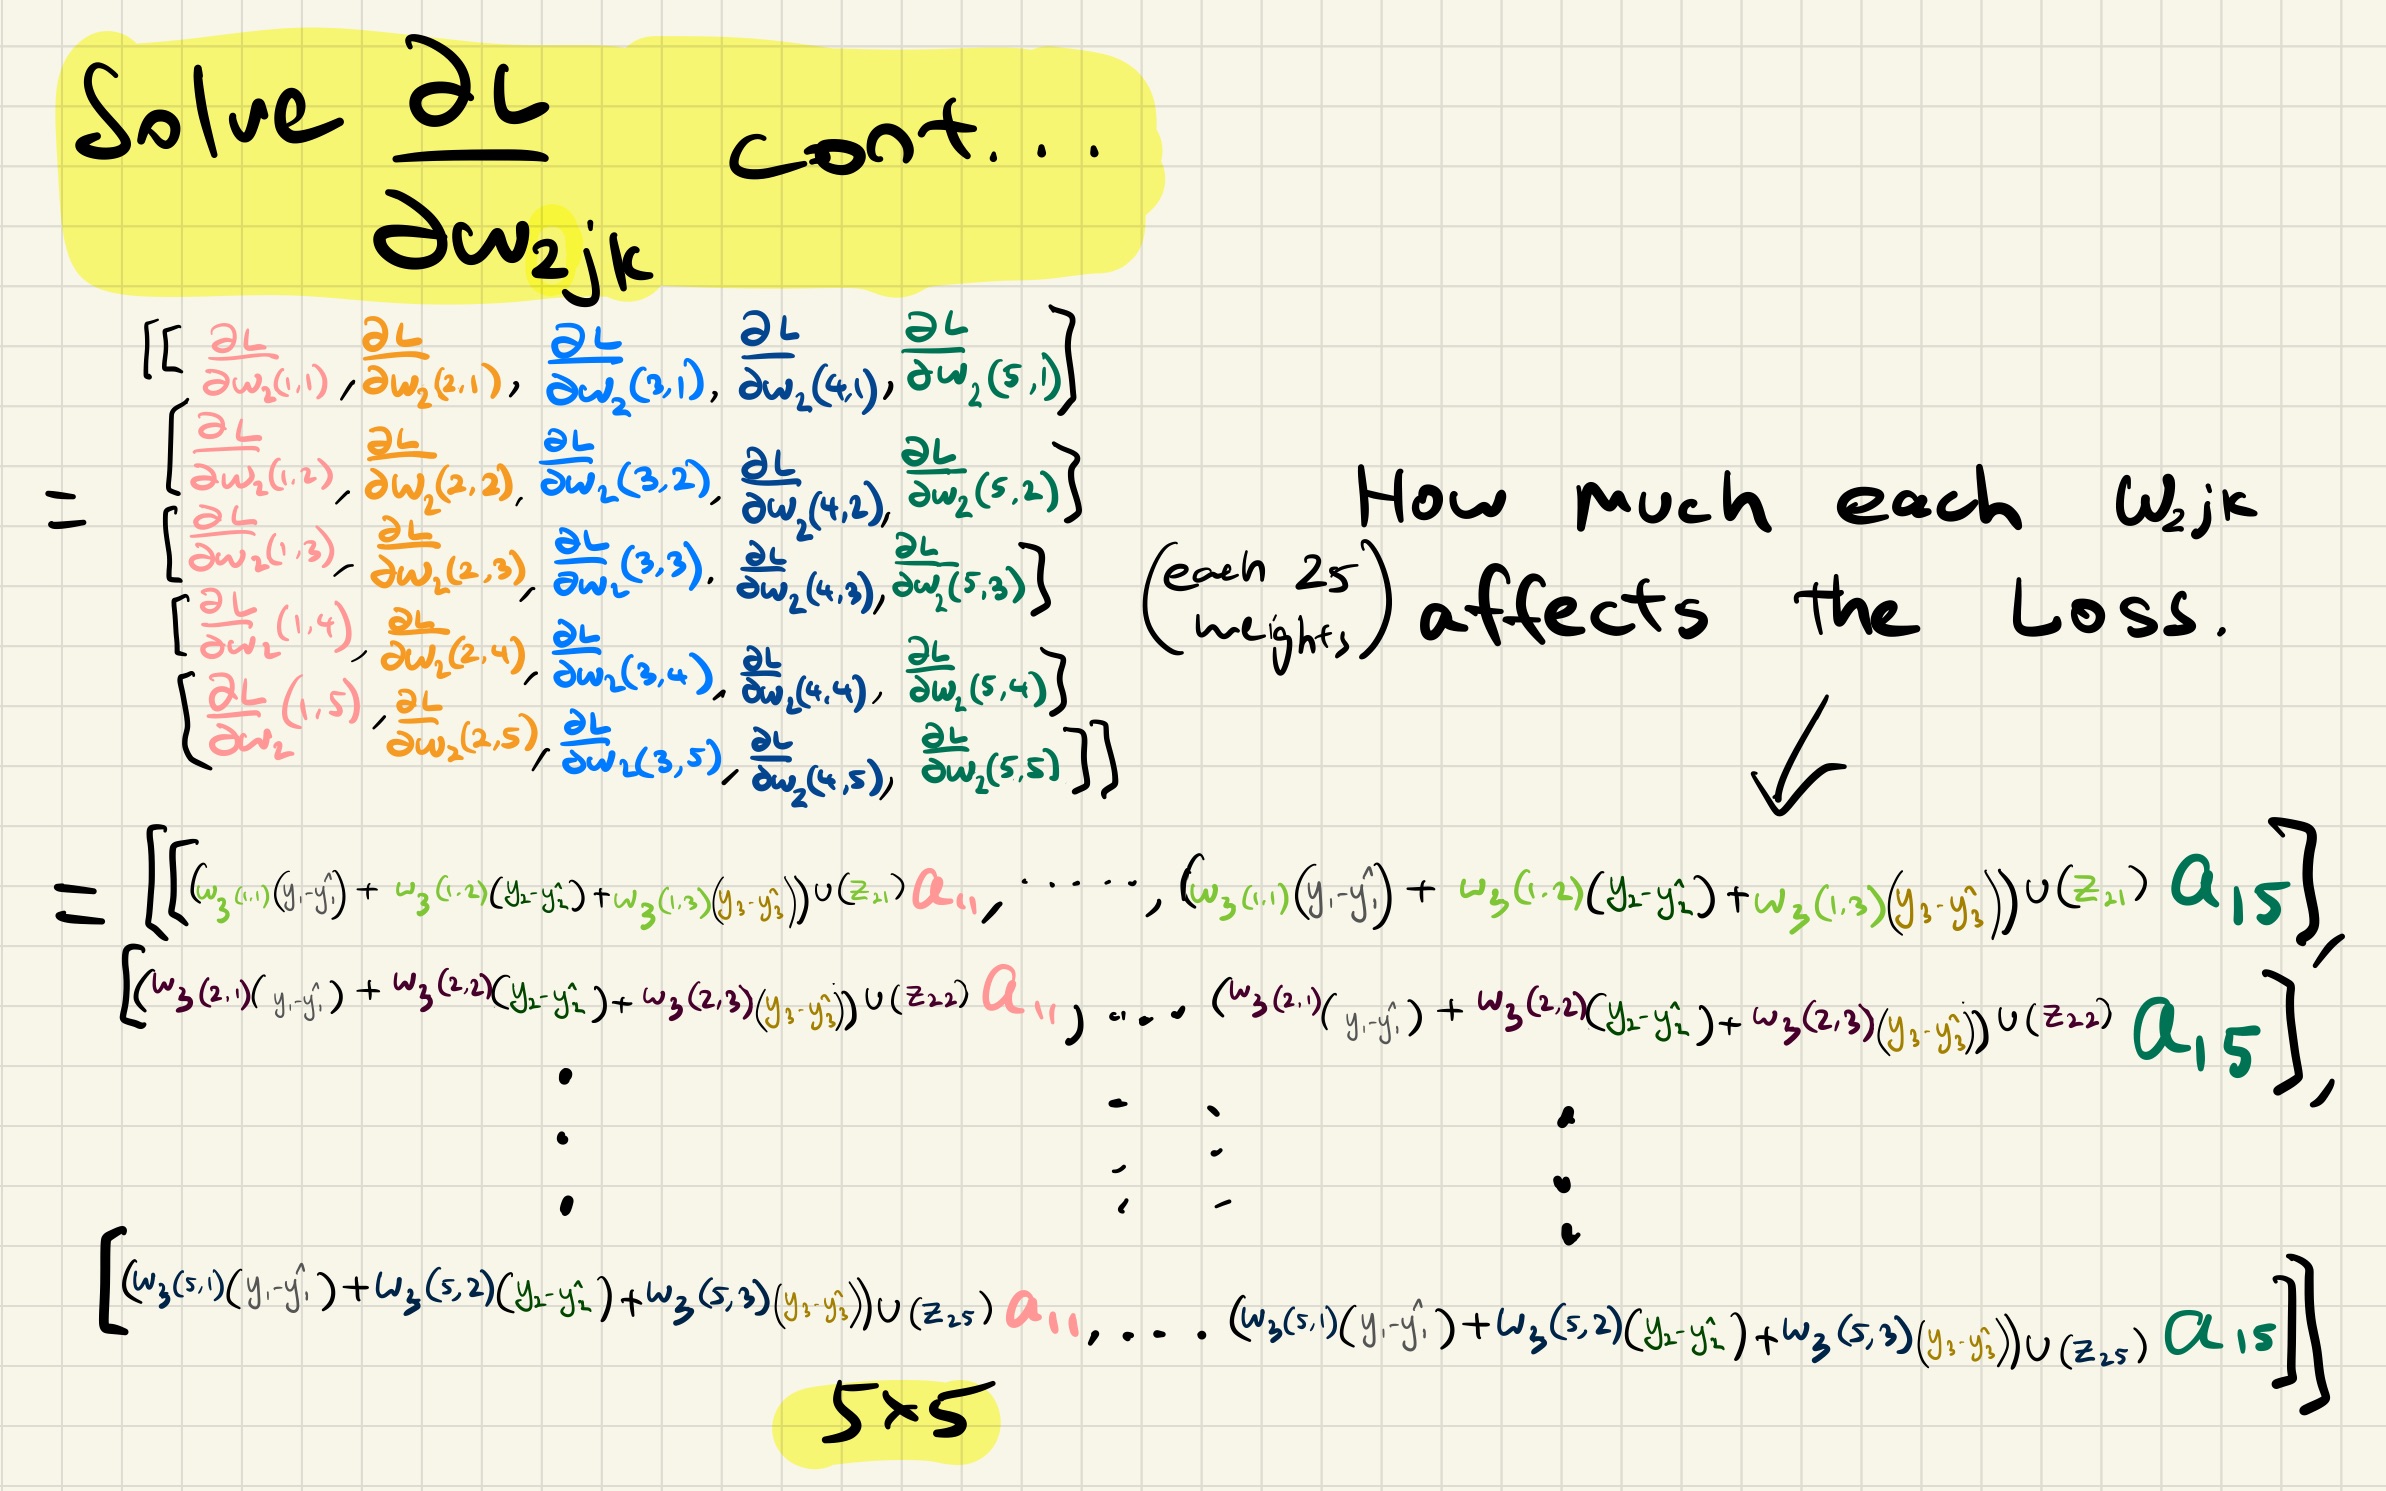 Solve ∂L/∂w₂jk cont...
= [[ ∂L/∂w₂(1,1), ∂L/∂w₂(2,1), ∂L/∂w₂(3,1), ∂L/∂w₂(4,1), ∂L/∂w₂(5,1) ]
[ ∂L/∂w₂(1,2), ∂L/∂w₂(2,2), ∂L/∂w₂(3,2), ∂L/∂w₂(4,2), ∂L/∂w₂(5,2) ]
[ ∂L/∂w₂(1,3), ∂L/∂w₂(2,3), ∂L/∂w₂(3,3), ∂L/∂w₂(4,3), ∂L/∂w₂(5,3) ]
[ ∂L/∂w₂(1,4), ∂L/∂w₂(2,4), ∂L/∂w₂(3,4), ∂L/∂w₂(4,4), ∂L/∂w₂(5,4) ]
[ ∂L/∂w₂(1,5), ∂L/∂w₂(2,5), ∂L/∂w₂(3,5), ∂L/∂w₂(4,5), ∂L/∂w₂(5,5) ]]
How much each W₂jk
(each 25 weights) affects the Loss.
= [[(w₃(1,1)(y₁-ŷ₁) + w₃(1,2)(y₂-ŷ₂) + w₃(1,3)(y₃-ŷ₃)) U(z₂₁) a₁₁, ....., (w₃(1,1)(y₁-ŷ₁) + w₃(1,2)(y₂-ŷ₂) + w₃(1,3)(y₃-ŷ₃)) U(z₂₁) a₁₅],
[(w₃(2,1)(y₁-ŷ₁) + w₃(2,2)(y₂-ŷ₂) + w₃(2,3)(y₃-ŷ₃)) U(z₂₂) a₁₁, .... (w₃(2,1)(y₁-ŷ₁) + w₃(2,2)(y₂-ŷ₂) + w₃(2,3)(y₃-ŷ₃)) U(z₂₂) a₁₅],
[(w₃(5,1)(y₁-ŷ₁) + w₃(5,2)(y₂-ŷ₂) + w₃(5,3)(y₃-ŷ₃)) U(z₂₅) a₁₁, .... (w₃(5,1)(y₁-ŷ₁) + w₃(5,2)(y₂-ŷ₂) + w₃(5,3)(y₃-ŷ₃)) U(z₂₅) a₁₅]]
5×5